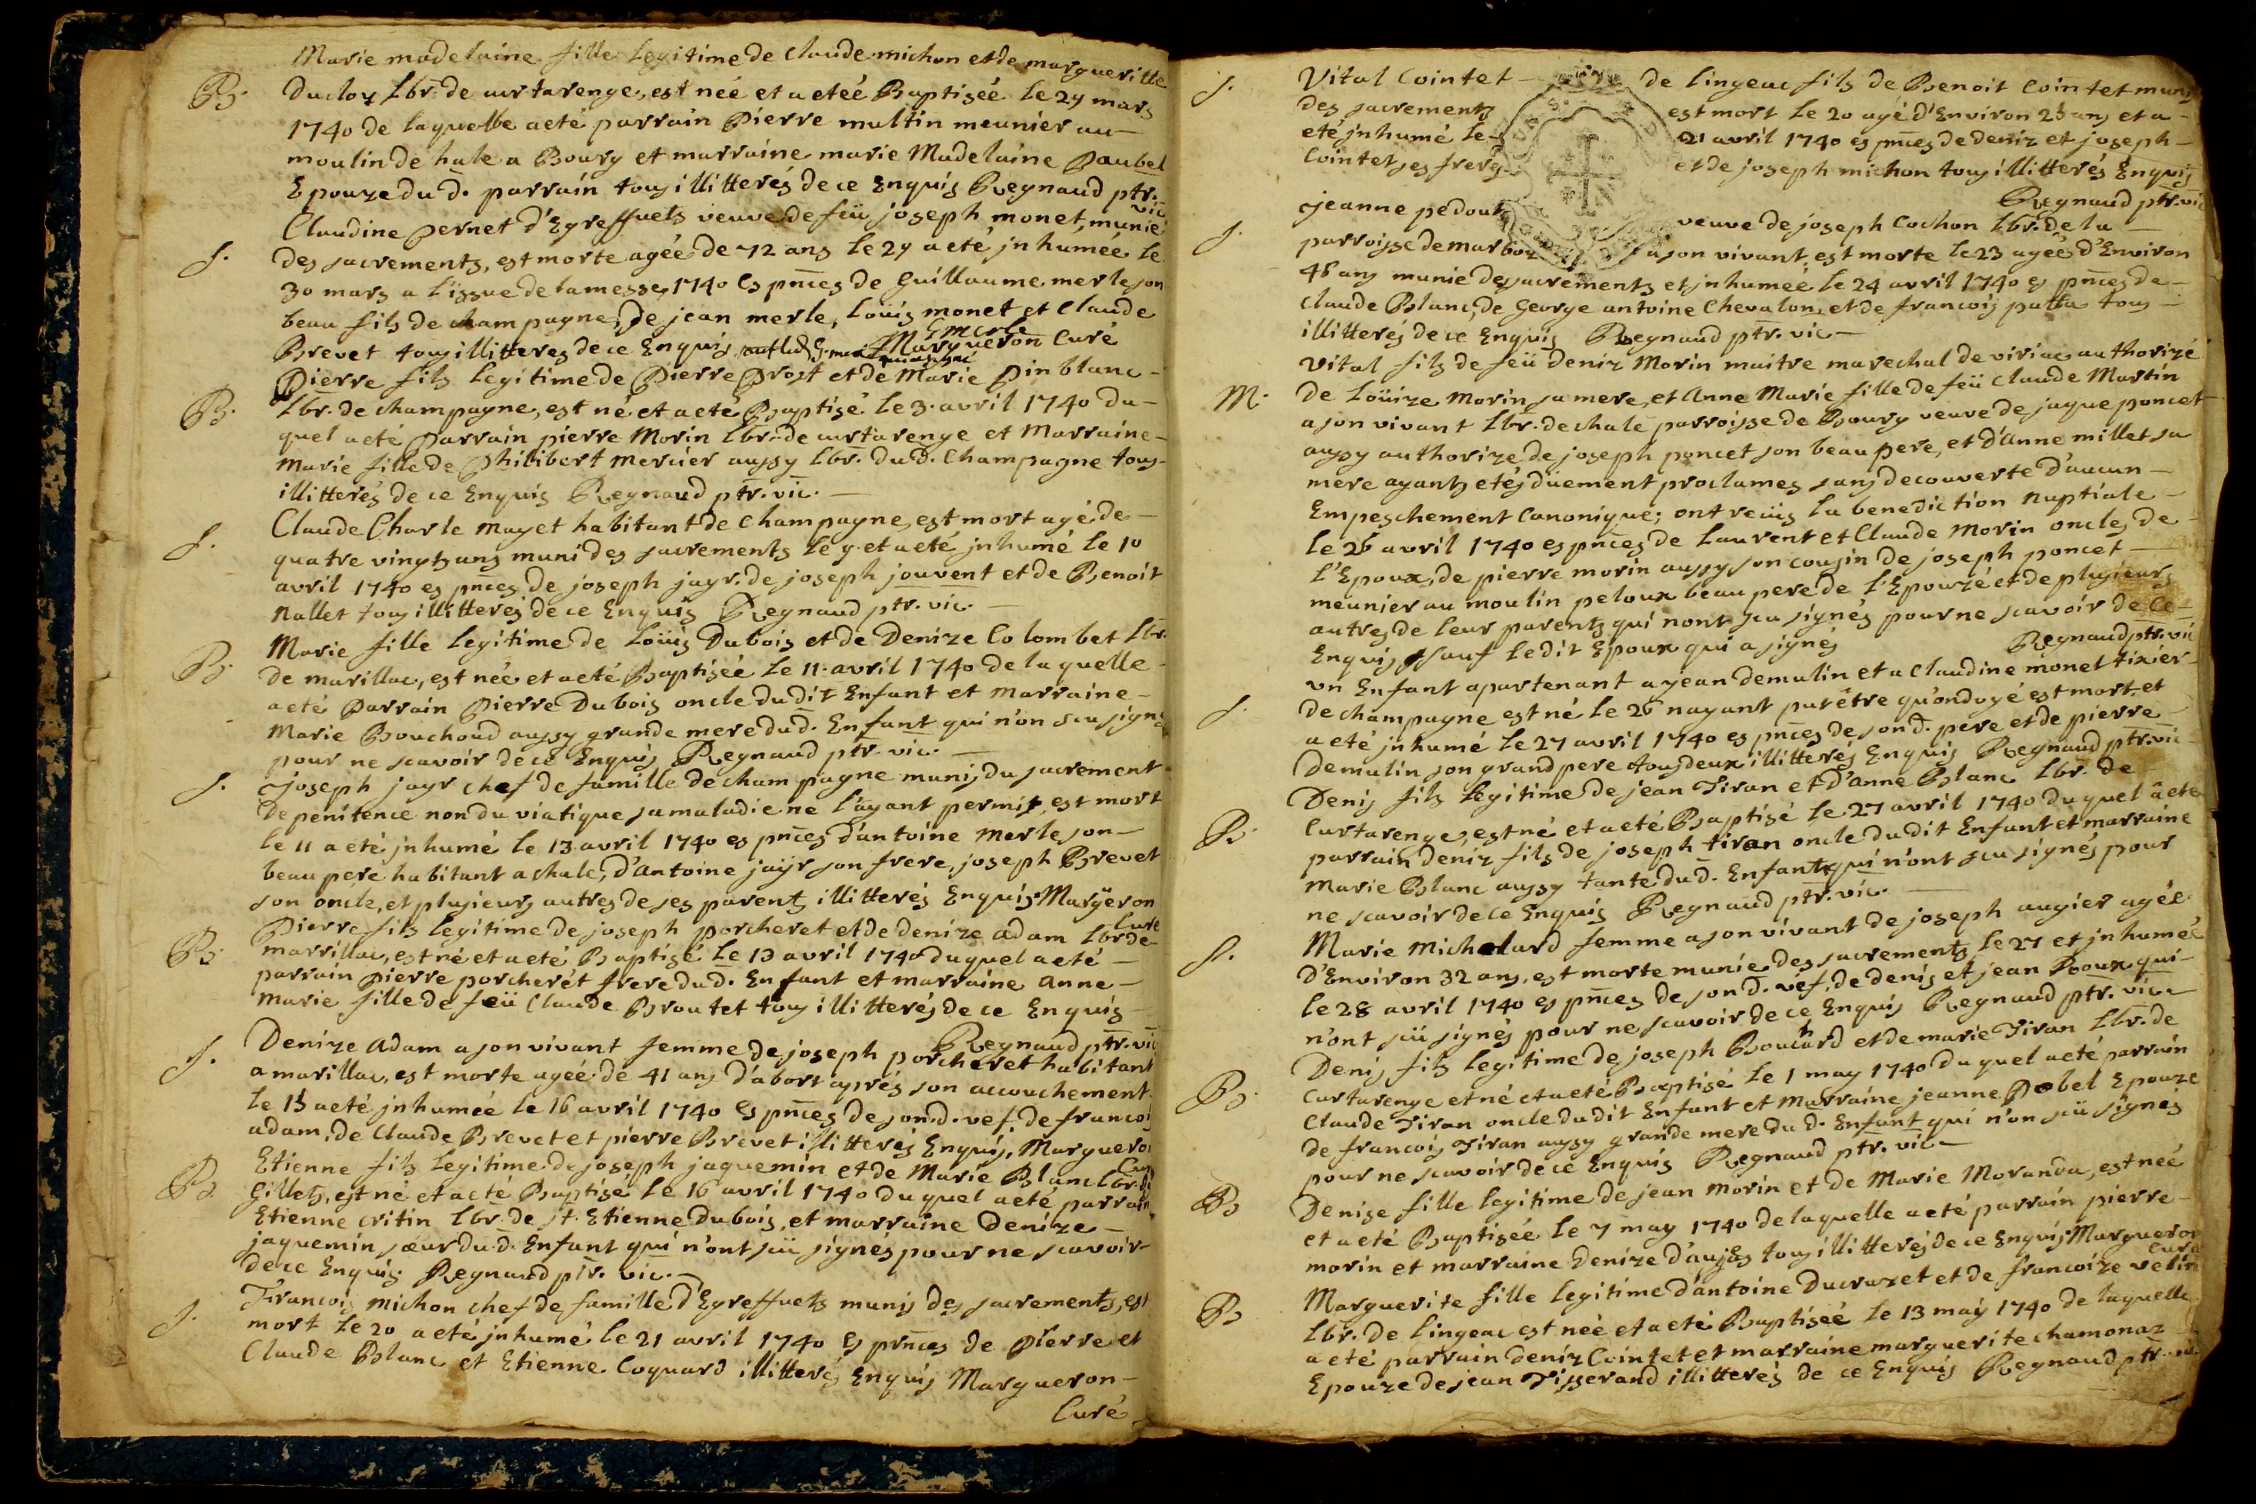 Marie madelaine fille legitime de claude michon et de margueritte
B. Ducloz Lbr. de curtarenge, est née et a eteé Baptiseé le 29 mars
1740 de laquelle a eté parrain Pierre multin meunier au
moulin de hale a Bourg et marraine marie Madelaine Paubel
Epouze du d. parrain tous illitterés de ce Enquis Regnaud ptr. vic
Claudine Pernet d'Egreffuets veuve de feü joseph monet, munie
S. des sacrements, est morte ageé de 72 ans le 29 a eté jnhumeé le
30 mars a l'issue de la messe, 1740 es pnces de guillaume merle son
beau fils de champagne, de jean merle, Loüis monet et claude
Brevet tous illitteres de ce Enquis sauf led. G. merle qui a signé G merle Margueron Curé
Pierre fils legitime de Pierre Prost et de Marie Pin blanc
B. Lbr. de champagne, est né et a eté Baptisé le 3. avril 1740 du
quel a eté Parrain pierre Morin Lbr. de curtarenge et Marraine
marie fille de Philibert Mercier aussy Lbr. dud. Champagne tous
illitterés de ce Enquis Regnaud ptr. vic.
Claude Charle Mayet habitant de Champagne, est mort agé de
S. quatre vingts ans muni des sacrements le 9. et a eté jnhumé le 10
avril 1740 es pnces de joseph jayr. de joseph jouvent et de Benoit
Nallet tous illitterés de ce Enquis Regnaud ptr. vic.
Marie fille legitime de Loüis Dubois et de Denize Colombet Lbr.
B. de marillac, est née et a eté Baptiseé le 11. avril 1740 de laquelle
a eté Parrain Pierre Dubois oncle dudit Enfant et Marraine
Marie Bouchoud aussy grande mere dud. Enfant qui n'on sçu signé
pour ne scavoir de ce Enquis Regnaud ptr. vic.
S. joseph jayr chef de famille de champagne munis du sacrement
de penitence non du viatique sa maladie ne l'ayant permis, est mort
le 11 a eté jnhumé le 13 avril 1740 es pnces d'antoine merle son
beau pere habitant a chale, d'antoine jaÿr son frere, joseph Brevet
son oncle, et plusieurs autres de ses parents illitterés Enquis Margueron Curé
Pierre fils legitime de joseph porcheret et de denize adam Lbr de
B. marrillac, est né et a eté Baptisé le 13 avril 1740 duquel a eté
parrain Pierre porcherét frere dud. Enfant et marraine anne
marie fille de feü Claude Broutet tous illitterés de ce Enquis
Regnaud ptr. vic
S. Denize adam a son vivant femme de joseph porcheret habitant
a marillac, est morte ageé de 41 ans d'abort aprés son accouchement
le 15 a eté jnhumeé le 16 avril 1740 es pnces de son d. vef. de francois
adam, de Claude Brevet et pierre Brevet illitterés Enquis, Margueron Curé
Etienne fils legitime de joseph jaquemin et de Marie Blanc Lbr.
B. Gillets, est né et a eté Baptisé le 16 avril 1740 duquel a eté parrain
Etienne critin Lbr. de st. Etienne Dubois, et marraine Denize
jaquemin sœur du d. Enfant qui n'ont sçü signés pour ne scavoir
de ce Enquis Regnaud ptr. vic.
S. Francois michon chef de famille d'Egreffuets munis des sacrements, est
mort le 20 a eté jnhumé le 21 avril 1740 es prnces de pierre et
Claude Blanc et Etienne Coquard illitterés Enquis Margueron
Curé
S. Vital Cointet de lingeac fils de Benoit Cointet munis
des sacrements est mort le 20 agé d'Environ 25 ans et a
eté jnhumé le 21 avril 1740 es pnces de deniz et joseph
Cointet ses freres et de joseph michon tous illitterés Enquis
Regnaud ptr. vic
S. jeanne pedout veuve de joseph Cochon Lbr. de la
parroisse de marboz a son vivant, est morte le 23 ageé d'Environ
46 ans munie des sacrements et jnhumeé le 24 avril 1740 es pnces de
Claude Blanc, de George antoine Chevalon, et de francois patta tous
illitterés de ce Enquis Regnaud ptr. vic
Vital fils de feü deniz Morin maitre marechal de viriac authorizé
M. de Loüize Morin sa mere, et Anne Marie fille de feü Claude Martin
a son vivant Lbr. de chale parroisse de Bourg veuve de jaque poncet
aussy authorize de joseph poncet son beau pere, et d'Anne millet sa
mere ayants etés düement proclames sans decouverte d'aucun
Empeschement canonique; ont reçüs la benediction nuptiale
le 26 avril 1740 es pnces de Laurent et Claude Morin oncles de
l'Epoux, de pierre morin aussy son cousin de joseph poncet
meunier au moulin peloux beau pere de l'Epouzé et de plusieurs
autres de leur parents qui nont sçu signés pour ne scavoir de ce
Enquis sauf le dit Epoux qui a signés Regnaud ptr. vic
un Enfant apartenant a jean demulin et a Claudine monet tixier
S. de champagne est né le 26 n'ayant put être qu'ondoyé est mort et
a eté jnhumé le 27 avril 1740 es pnces de son d. pere et de pierre
Demulin son grand pere tous deux illitterés Enquis Regnaud ptr. vic
Denis fils legitime de jean Tiran et d'anne Blanc Lbr. de
B. Curtarenge, est né et a eté Baptisé le 27 avril 1740 duquel a eté
parrain deniz fils de joseph tiran oncle dudit Enfant et marraine
Marie Blanc aussy tante du d. Enfant qui n'ont sçu signés pour
ne scavoir de ce Enquis Regnaud ptr. vic.
S. Marie Michelard femme a son vivant de joseph augier ageé
D'Environ 32 ans, est morte munie des sacrements, le 27 et jnhumeé
le 28 avril 1740 es pnces de son d. vef, de denis et jean Roux qui
n'ont sçü signés pour ne scavoir de ce Enquis Regnaud ptr. vic
Denis fils legitime de joseph Bouchard et de marie Tiran Lbr. de
B. Curtarenge et né et a eté Baptisé le 1 may 1740 duquel a eté parrain
Claude Tiran oncle dudit Enfant et Marraine jeanne Pobel Epouze
de francois Tiran aussy grande mere du d. Enfant qui n'on sçü signés
pour ne scavoir de ce Enquis Regnaud ptr. vic
B. Denise fille legitime de jean morin et de Marie Moranda, est neé
et a eté Baptiseé le 7 may 1740 de laquelle a eté parrain pierre
morin et marraine Denize d'aujas tous illitterés de ce Enquis Margueron Curé
Marguerite fille legitime d'antoine Ducruzet et de francoize velin
B. Lbr. de lingeac est neé et a eté Baptiseé le 13 may 1740 de laquelle
a eté parrain deniz Cointet et marraine marguerite chamonaz
Epouze de jean Tisserand illitterés de ce Enquis Regnaud ptr. vic.